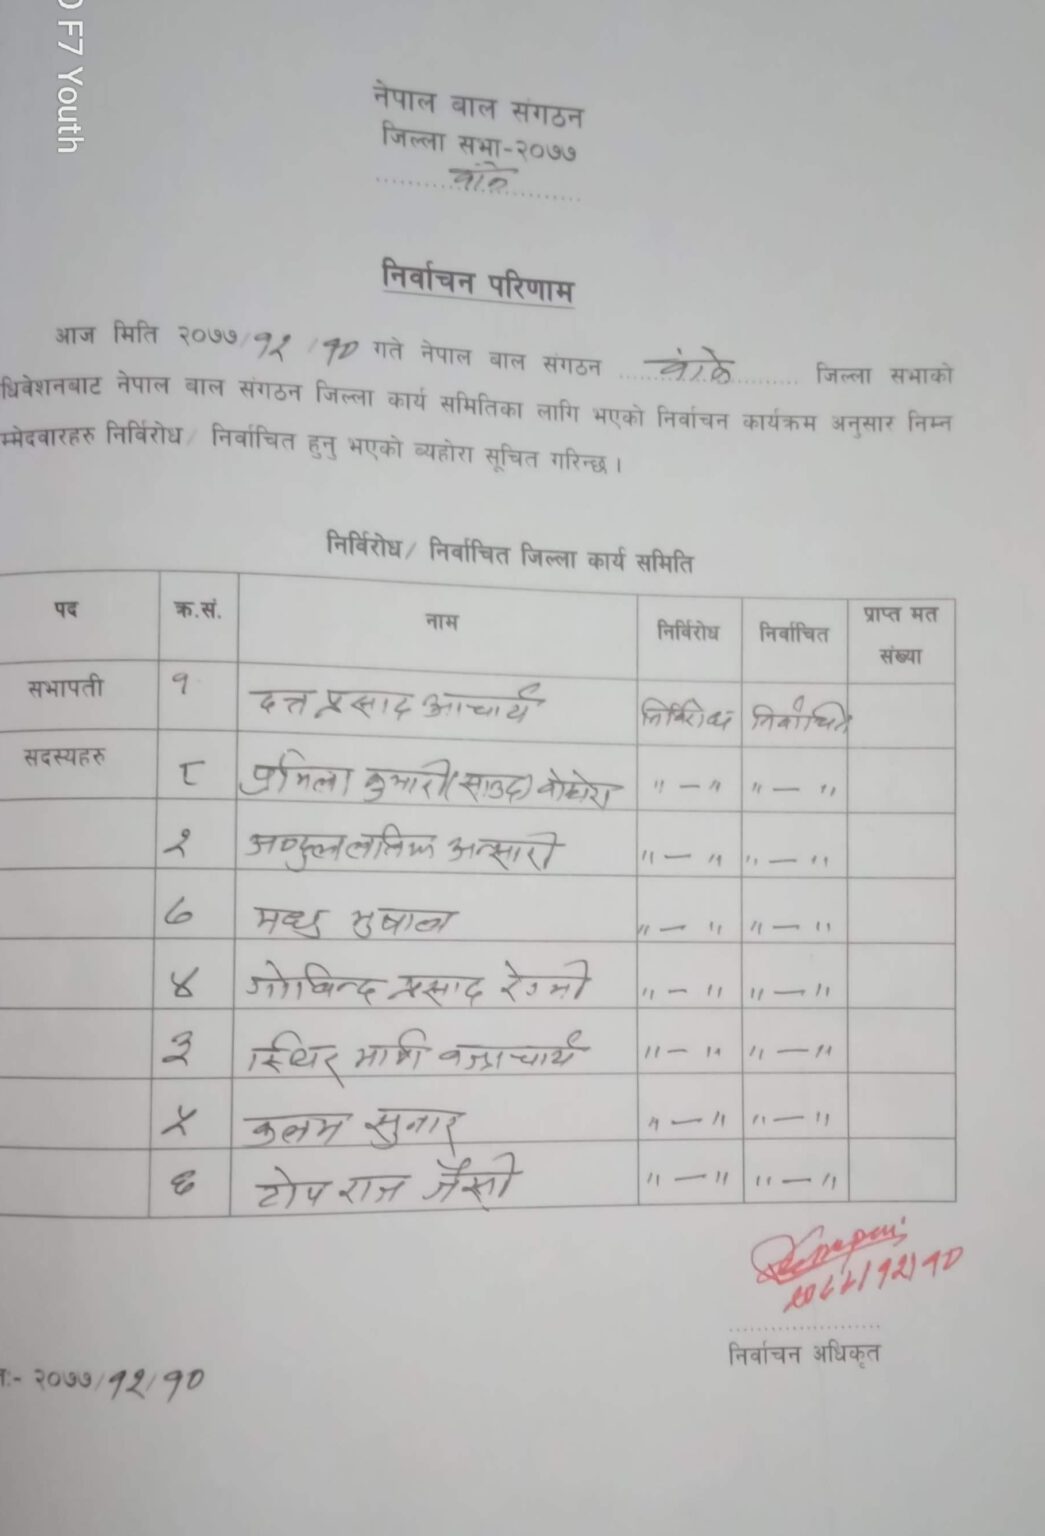 F7 Youth
नेपाल बाल संगठन
जिल्ला सभा-२०७७
बांके
निर्वाचन परिणाम
आज मिति २०७७/१२/१० गते नेपाल बाल संगठन बांके जिल्ला सभाको
धिवेशनबाट नेपाल बाल संगठन जिल्ला कार्य समितिका लागि भएको निर्वाचन कार्यक्रम अनुसार निम्न
म्मेदवारहरु निर्विरोध/ निर्वाचित हुनु भएको ब्यहोरा सूचित गरिन्छ ।
निर्विरोध/ निर्वाचित जिल्ला कार्य समिति
पद क्र.सं. नाम निर्विरोध निर्वाचित प्राप्त मत
संख्या
सभापती १ दत्त प्रसाद आचार्य निर्विरोध निर्वाचित
सदस्यहरु ८ प्रमिला कुमारी (साउद) " — " " — "
२ अब्दुल लतिफ अन्सारी " — " " — "
७ मधु " — " " — "
४ गोविन्द प्रसाद रेग्मी " — " " — "
३ स्थिर मणि बज्राचार्य " — " " — "
५ कलम सुनार " — " " — "
६ टोप राज जैसी " — " " — "
२०७७/१२/१०
निर्वाचन अधिकृत
:- २०७७/१२/१०